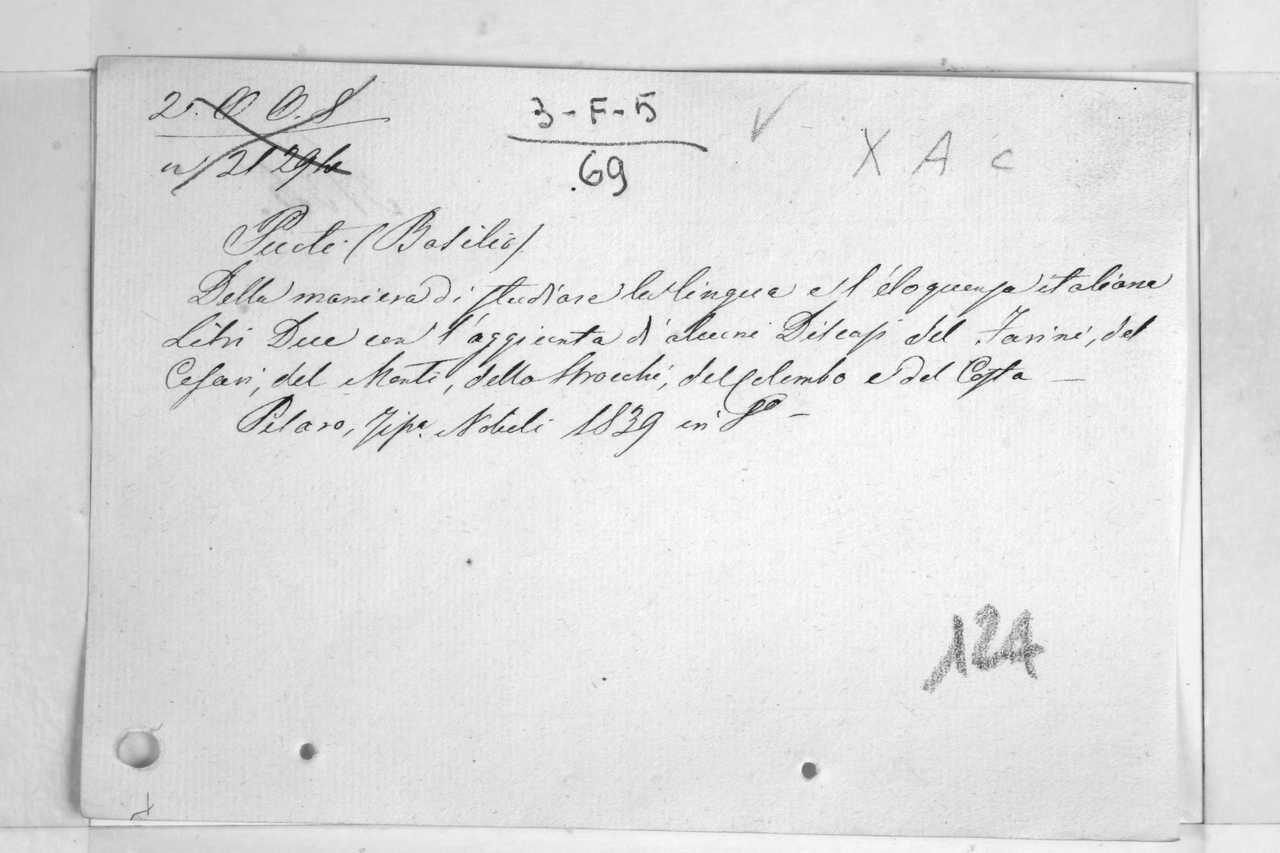 25. O O. 8
3-F-5
69
X A c
Puoti (Basilio)
Della maniera di studiare la lingua e l'éloquenza italiana
Libri Due con l'aggiunta d'alcuni Discorsi del Farini, del
Cesari, del Monti, dello Strocchi, del Colombo e del Costa —
Pesaro, Tipa. Nobili 1839 in 8o —
124